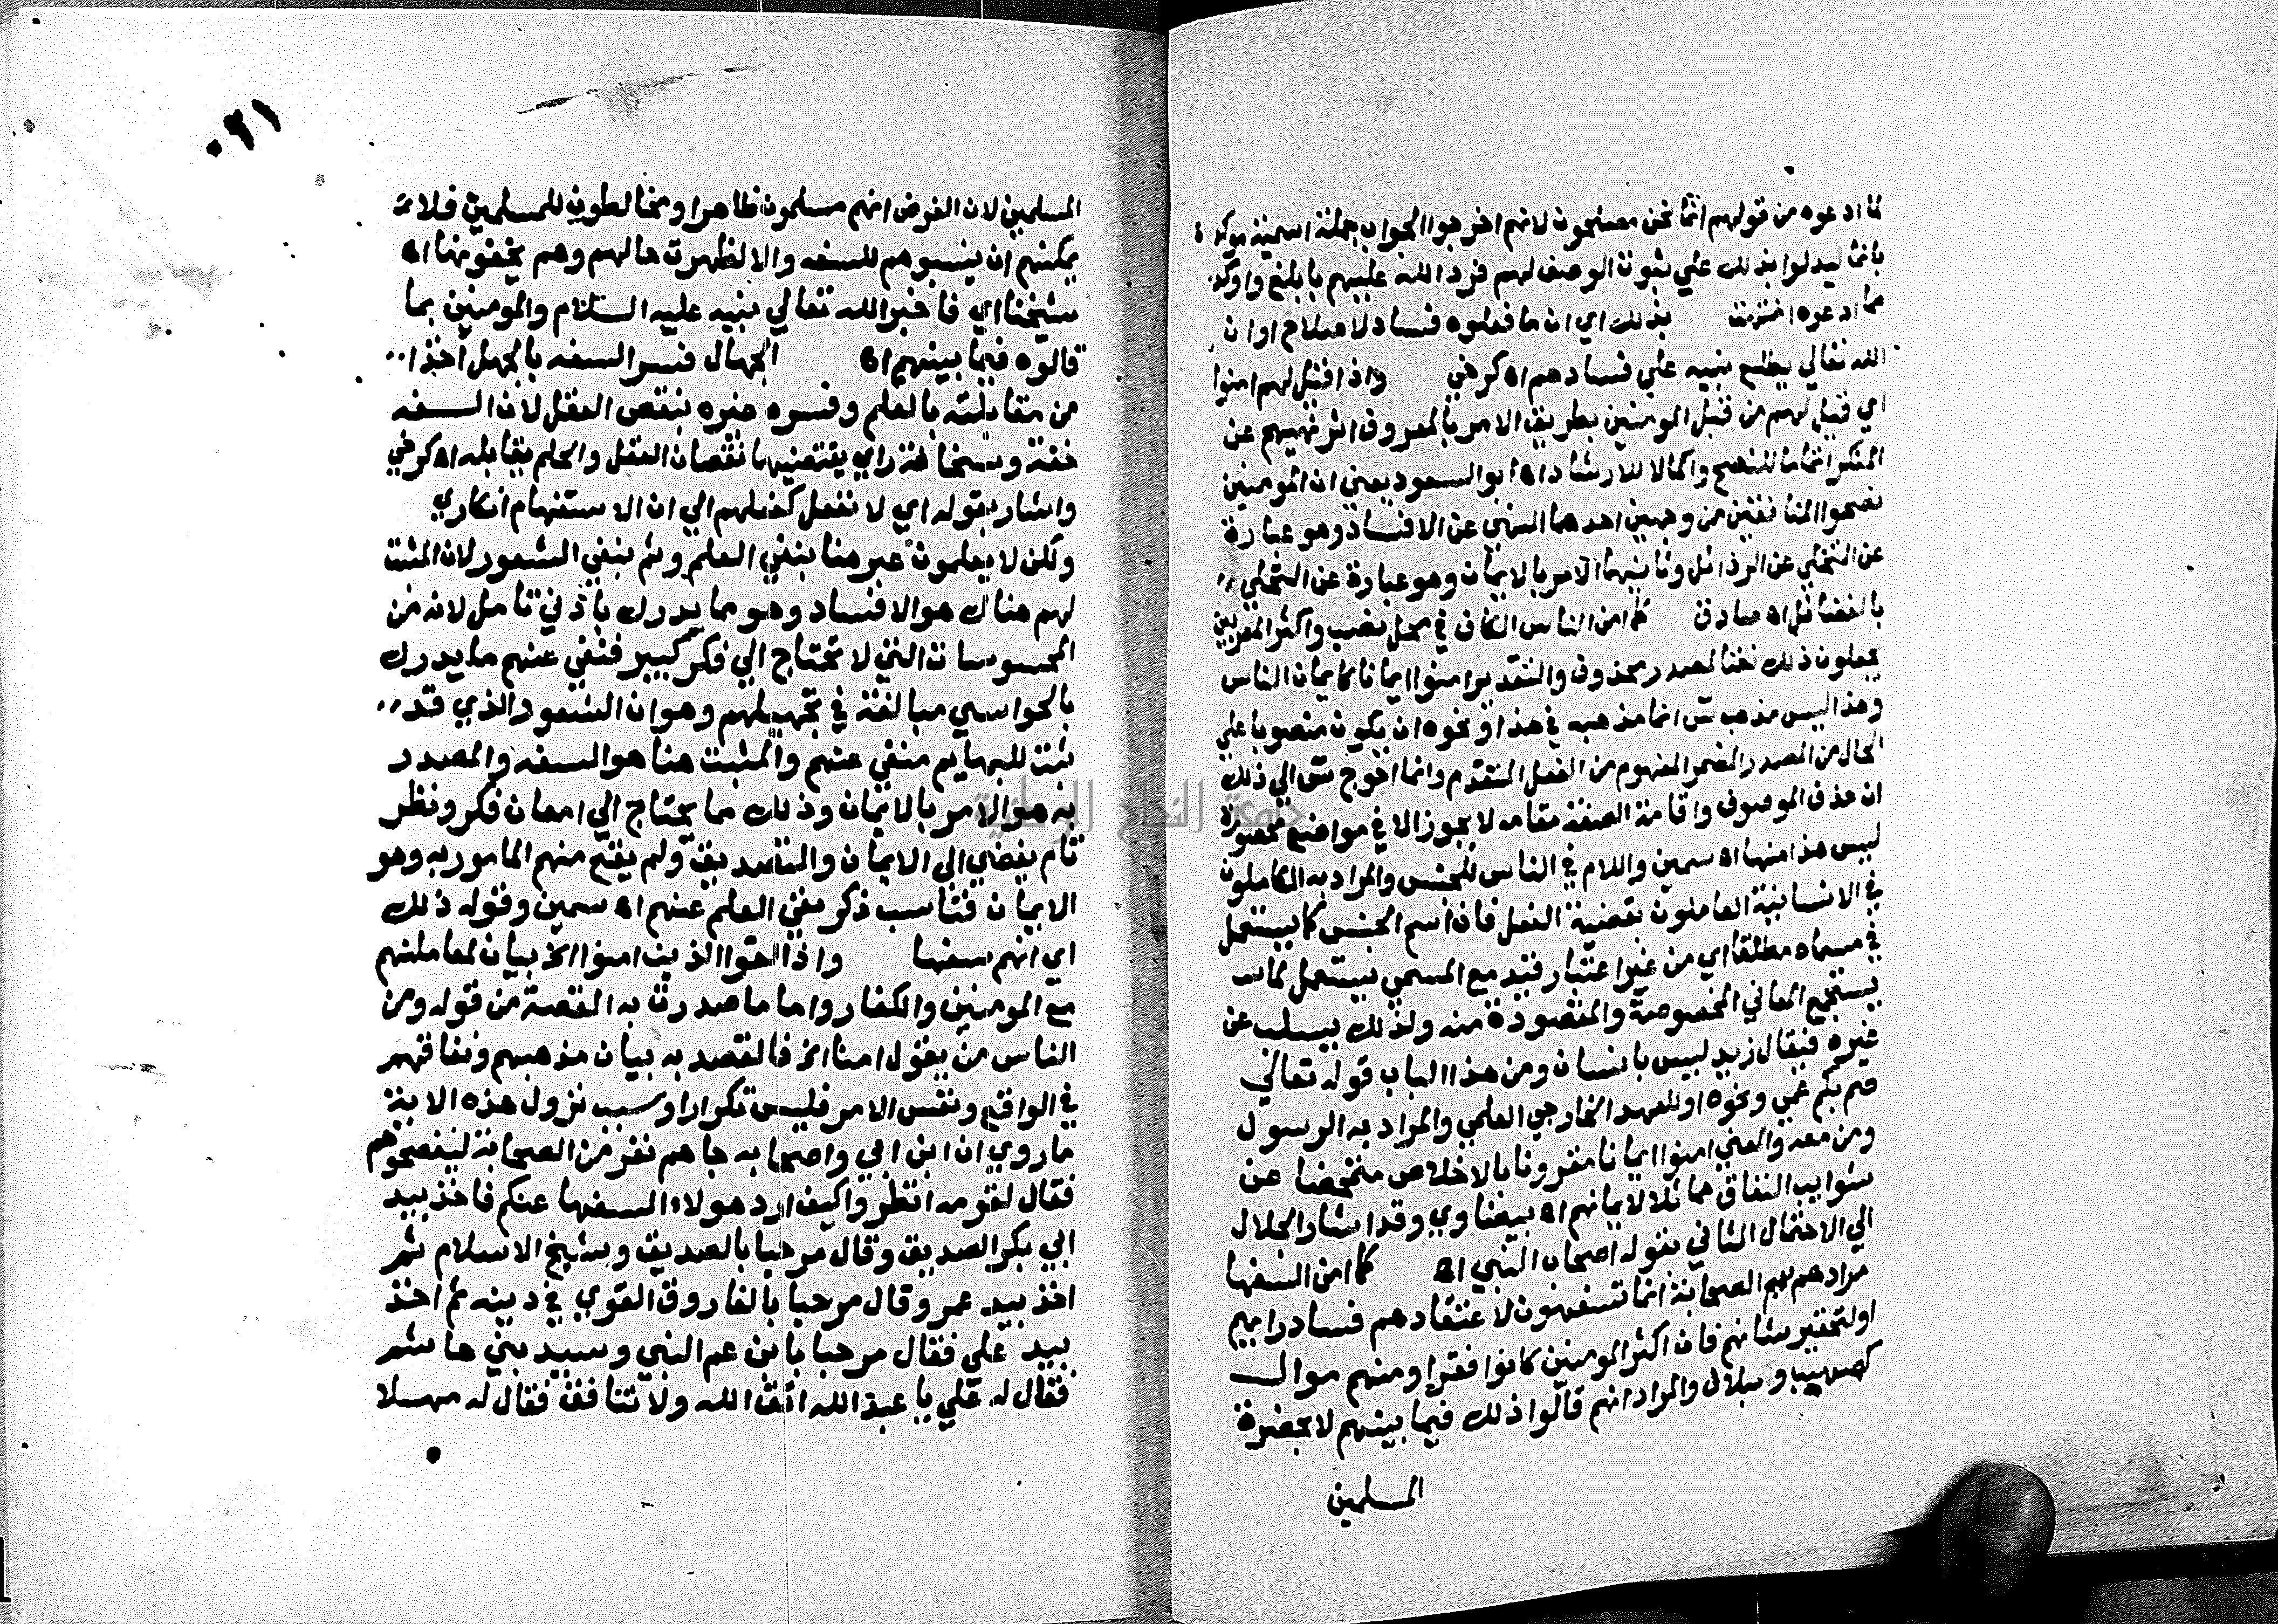 لما ادعوه من قولهم انما نحن مصلحون لانهم اخرجوا الجواب جملة اسمية موكدة
بانما ليدلوا بذلك علي ثبوت الوصف لهم فرد الله عليهم بابلغ واوكد
مما ادعوه بذلك اي ان ما فعلوه فساد لا صلاح او ان
الله تعالي يطلع نبيه علي فسادهم اه كرخي واذا قيل لهم امنوا
اي قيل لهم من قبل المومنين بطريق الامر بالمعروف اثر نهيهم عن
المنكر اتماما للنصح واكمالا للارشاد اه ابو السعود يعني ان المومنين
نصحوا المنافقين من وجهين احدهما النهي عن الافساد وهو عبارة
عن التخلي عن الرذائل وثانيهما الامر بالايمان وهو عبارة عن التحلي
بالفضائل اه صادق كما امن الناس الكاف في محل نصب واكثر المعربين
يجعلون ذلك نعتا لمصدر محذوف والتقدير امنوا ايمانا كايمان الناس
وهذا ليس مذهب س انما مذهبه في هذا ونحوه ان يكون منصوبا علي
الحال من المصدر المضمر المفهوم من الفعل المتقدم وانما احوج س الي ذلك
ان حذف الموصوف واقامة الصفة مقامه لا يجوز الا في مواضع محصورة
ليس هذا منها اه سمين واللام في الناس للجنس والمراد به الكاملون
في الانسانية العاملون بقضية العقل فان اسم الجنس كما يستعمل
في مسماه مطلقا اي من غير اعتبار قيد مع المسمي يستعمل لما
يستجمع المعاني المخصوصة والمقصودة منه ولذلك يسلب عن
غيره فيقال زيد ليس بانسان ومن هذا الباب قوله تعالي
صم بكم عمي ونحوه او للعهد الخارجي العلمي والمراد به الرسول
ومن معه والمعني امنوا ايمانا مقرونا بالاخلاص متمحضا عن
شوايب النفاق مماثلا لايمانهم اه بيضاوي وقد اشار الجلال
الي الاحتمال الثاني بقوله اصحاب النبي اه كما امن السفها
مرادهم بهم الصحابة انما تسفهون لاعتقادهم فساد رايهم
او لتحقير شانهم فان اكثر المومنين كانوا فقرا ومنهم موال
كصهيب وبلال والمراد انهم قالوا ذلك فيما بينهم لا بحضرة
المسلمين
٠٢١
المسلمين لان الغرض انهم مسلمون ظاهرا ومخالطون للمسلمين فلا
يمكنهم ان ينسبوهم للسفه والا لظهرت حالهم وهم يخفونها اه
شيخنا اي فاخبر الله تعالي نبيه عليه السلام والمومنين بما
قالوه فيما بينهم اه الجهال فسر السفه بالجهل اخذا
من مقابلته بالعلم وفسره غيره بنقص العقل لان السفه
خفة وسخافة راي يقتضيهما نقصان العقل والحلم يقابله اه كرخي
واشار بقوله اي لا نفعل كفعلهم الي ان الاستفهام انكاري
ولكن لا يعلمون عبر هنا بنفي العلم وثم بنفي الشعور لان المثبت
لهم هناك هو الافساد وهو مما يدرك بادني تامل لانه من
المحسوسات التي لا تحتاج الي فكر كبير فنفي عنهم ما يدرك
بالحواسي مبالغة في تجهيلهم وهو ان الشعور الذي قد
ثبت للبهايم منفي عنهم والمثبت هنا هو السفه والمصدر
به هو الامر بالايمان وذلك مما يحتاج الي امعان فكر ونظر
تام يفضي الي الايمان والتصديق ولم يقع منهم المامور به وهو
الايمان فناسب ذكر نفي العلم عنهم اه سمين وقوله ذلك
اي انهم سفها واذا لقوا الذين امنوا الخ بيان لمعاملتهم
مع المومنين والكفار واما ما صدرت به القصة من قوله ومن
الناس من يقول امنا الخ فالقصد به بيان مذهبهم ونفاقهم
في الواقع ونفس الامر فليس تكرارا وسبب نزول هذه الاية
ما روي ان ابن ابي واصحابه جاهم نفر من الصحابة لينصحوهم
فقال لقومه انظروا كيف ارد هولاء السفها عنكم فاخذ بيد
ابي بكر الصديق وقال مرحبا بالصديق وشيخ الاسلام ثم
اخذ بيد عمر وقال مرحبا بالفاروق القوي في دينه ثم اخذ
بيد علي فقال مرحبا بابن عم النبي وسيد بني هاشم
فقال له علي يا عبد الله اتق الله ولا تنافق فقال له مهلا
جامعة النجاح الوطنية